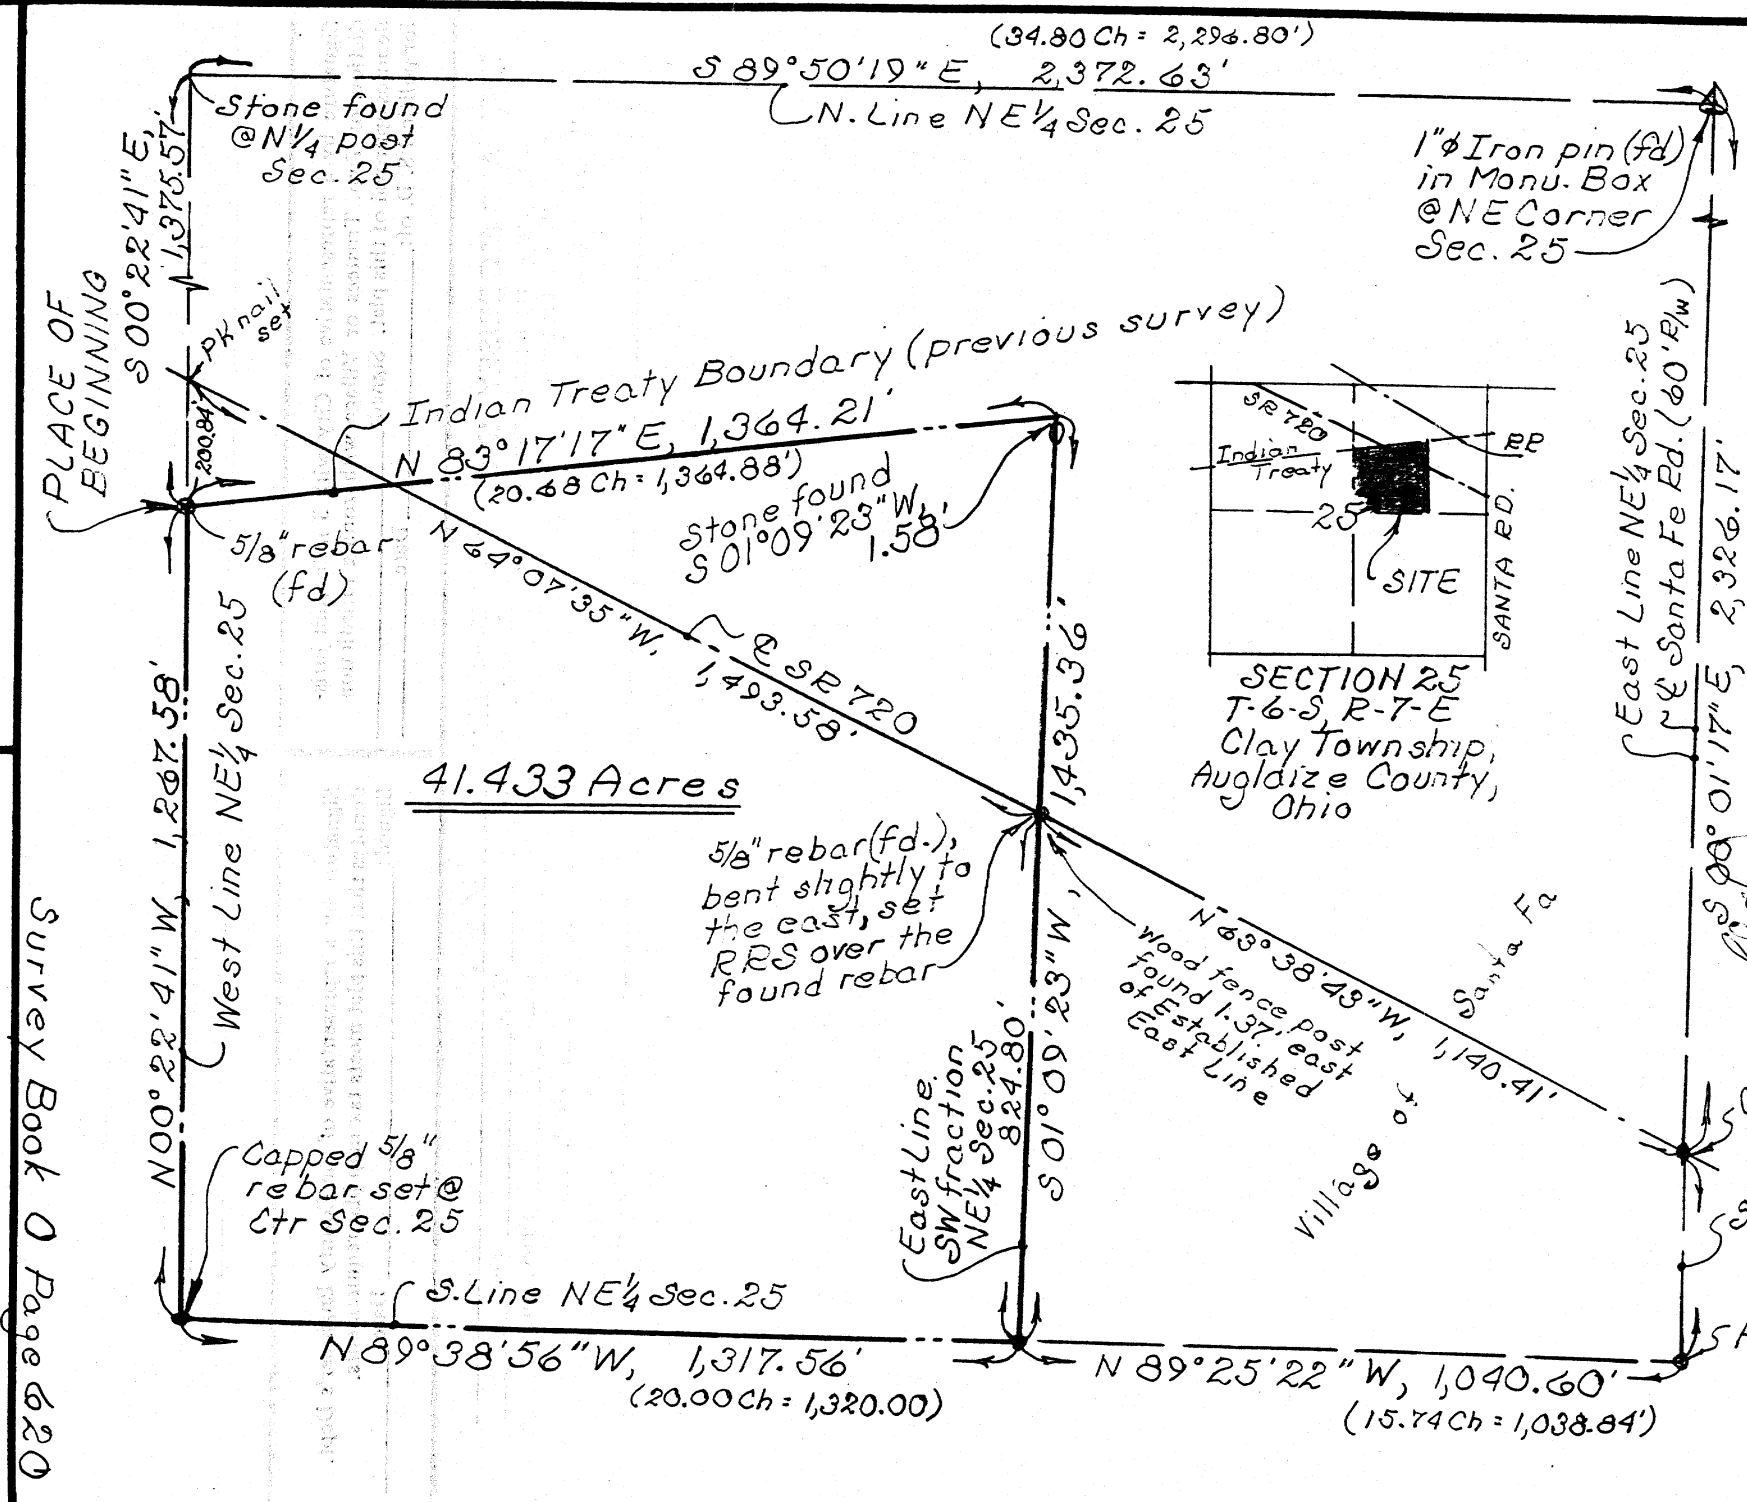 (34.80 Ch = 2,296.80')
S 89°50'19" E, 2,372.63'
N. Line NE 1/4 Sec. 25
Stone found
@ N 1/4 post
Sec. 25
S 00°22'41" E,
1,375.57'
1"ϕ Iron pin (fd)
in Monu. Box
@ NE Corner
Sec. 25
PLACE OF
BEGINNING
PK nail
set
200.84'
Indian Treaty Boundary (previous survey)
N 83°17'17" E, 1,364.21'
(20.68 Ch = 1,364.88')
Stone found
S 01°09'23" W,
1.58'
5/8" rebar
(fd)
N 64°07'35" W,
1,493.58'
℄ SR 720
SR 720
Indian
Treaty
RR
25
SITE
SANTA RD.
SECTION 25
T-6-S, R-7-E
Clay Township,
Auglaize County,
Ohio
East Line NE 1/4 Sec. 25
℄ Santa Fe Rd. (60' R/W)
S 00°01'17" E, 2,326.17'
N 00°22'41" W, 1,267.58'
West Line NE 1/4 Sec. 25
41.433 Acres
1,435.36'
S 01°09'23" W,
5/8" rebar (fd.),
bent slightly to
the east, set
RRS over the
found rebar
Wood fence post
found 1.37' east
of Established
East Line
N 63°38'43" W, 1,140.41'
Village to Santa Fa
East Line
SW fraction
NE 1/4 Sec. 25
824.80'
Capped 5/8"
rebar set @
Ctr Sec. 25
S. Line NE 1/4 Sec. 25
N 89°38'56" W, 1,317.56'
(20.00 Ch = 1,320.00)
N 89°25'22" W, 1,040.60'
(15.74 Ch = 1,038.84')
Survey Book O Page 620